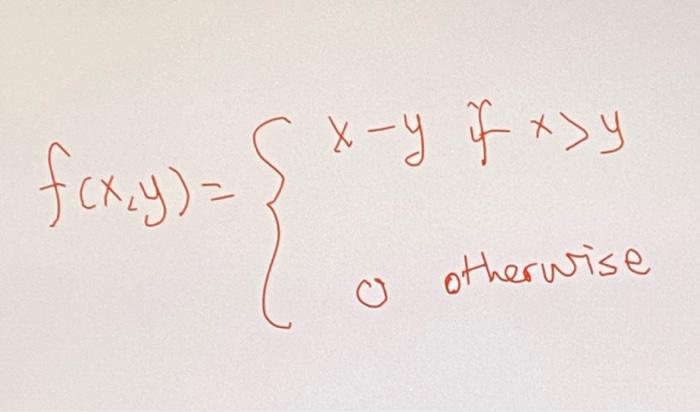 f(x,y) = { x - y if x > y
0 otherwise